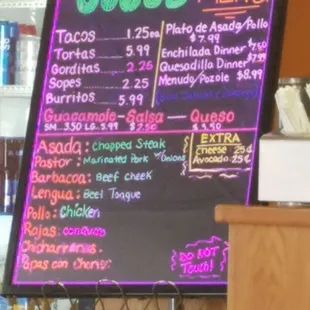 MENU
Tacos 1.25ea
Tortas 5.99
Gorditas 2.25
Sopes 2.25
Burritos 5.99
Plato de Asada/Pollo
$7.99
Enchilada Dinner $7.50
Quesadilla Dinner $7.99
Menudo/Pozole $8.99
Guacamole - Salsa - Queso
SM. 3.50 LG. 5.99 $2.50 $3.50
Asada: Chopped Steak
Pastor: Marinated Pork Onions
Barbacoa: Beef cheek
Lengua: Beef Tongue
Pollo: Chicken
Rajas:
Chicharrones
Papas con Chorizo
EXTRA
Cheese 25¢
Avocado 25¢
DO NOT
Touch!